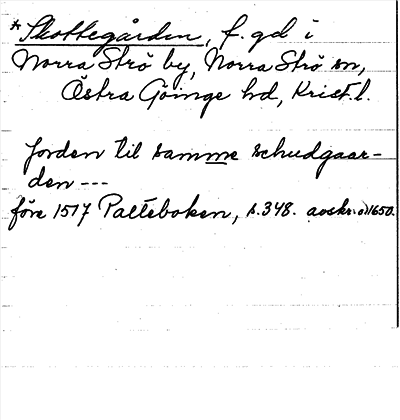 *Skottegården, f. gd i
Norra Strö by, Norra Strö sn,
Östra Göinge hd, Krist.l.
Jorden til samme schudgaar-
den ---
före 1517 Palteboken, s. 348. avskr. o. 1650.